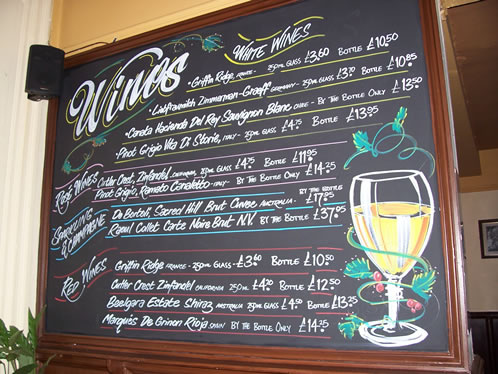 Wines
White Wines
• Griffin Ridge, FRANCE - 250ml GLASS £3.60 BOTTLE £10.50
• Liebfraumilch Zimmerman-Graeff GERMANY - 250ml GLASS £3.70 BOTTLE £10.85
• Canada Hacienda Del Rey Sauvignon Blanc CHILE - BY THE BOTTLE ONLY £13.50
• Pinot Grigio Vita Di Storie, ITALY - 250ml GLASS £4.75 BOTTLE £13.95
Rosé Wines
Cutler Crest, Zinfandel, CALIFORNIA 250ml GLASS £4.25 BOTTLE £11.95
Pinot Grigio, Ramato Canaletto - ITALY - BY THE BOTTLE ONLY £14.25
Sparkling & Champagne
De Bortoli, Sacred Hill Brut Cuvee, AUSTRALIA - BY THE BOTTLE £17.95
Raoul Collet Carte Noire Brut N.V. BY THE BOTTLE £37.95
Red Wines
Griffin Ridge FRANCE - 250ml GLASS - £3.60 BOTTLE £10.50
Cutler Crest Zinfandel CALIFORNIA 250ml GLASS £4.20 BOTTLE £12.50
Beelgara Estate Shiraz, AUSTRALIA 250ml GLASS £4.50 BOTTLE £13.25
Marqués De Grinon Rioja SPAIN BY THE BOTTLE ONLY £14.25